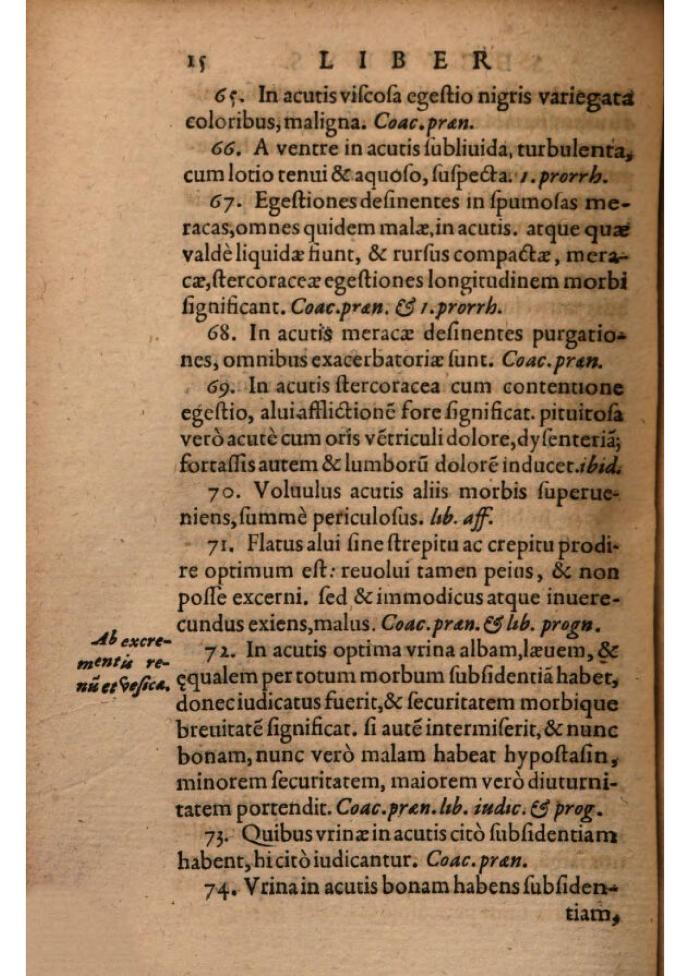 15 LIBER
65. In acutis viſcoſa egeſtio nigris variegata
coloribus, maligna. Coac. præn.
66. A ventre in acutis ſubliuida, turbulenta,
cum lotio tenui & aquoſo, ſuſpecta. 1. prorrh.
67. Egeſtiones deſinentes in ſpumoſas me-
racas, omnes quidem malæ, in acutis. atque quæ
valdè liquidæ fiunt, & rurſus compactæ, mera-
cæ, ſtercoraceæ egeſtiones longitudinem morbi
ſignificant. Coac. præn. & 1. prorrh.
68. In acutis meracæ deſinentes purgatio-
nes, omnibus exacerbatoriæ ſunt. Coac. præn.
69. In acutis ſtercoracea cum contentione
egeſtio, alui afflictionē fore ſignificat. pituitoſa
verò acutè cum oris vētriculi dolore, dyſenteriā;
fortaſſis autem & lumborū dolorē inducet. ibid.
70. Voluulus acutis aliis morbis ſuperue-
niens, ſummè periculoſus. lib. aff.
71. Flatus alui ſine ſtrepitu ac crepitu prodi-
re optimum eſt: reuolui tamen peius, & non
poſſe excerni. ſed & immodicus atque inuere-
cundus exiens, malus. Coac. præn. & lib. progn.
Ab excre-
mentis re-
nū et veſicæ.
72. In acutis optima vrina albam, læuem, &
ęqualem per totum morbum ſubſidentiā habet,
donec iudicatus fuerit, & ſecuritatem morbique
breuitatē ſignificat. ſi autē intermiſerit, & nunc
bonam, nunc verò malam habeat hypoſtaſin,
minorem ſecuritatem, maiorem verò diuturni-
tatem portendit. Coac. præn. lib. iudic. & prog.
73. Quibus vrinæ in acutis citò ſubſidentiam
habent, hi citò iudicantur. Coac. præn.
74. Vrina in acutis bonam habens ſubſiden-
tiam,